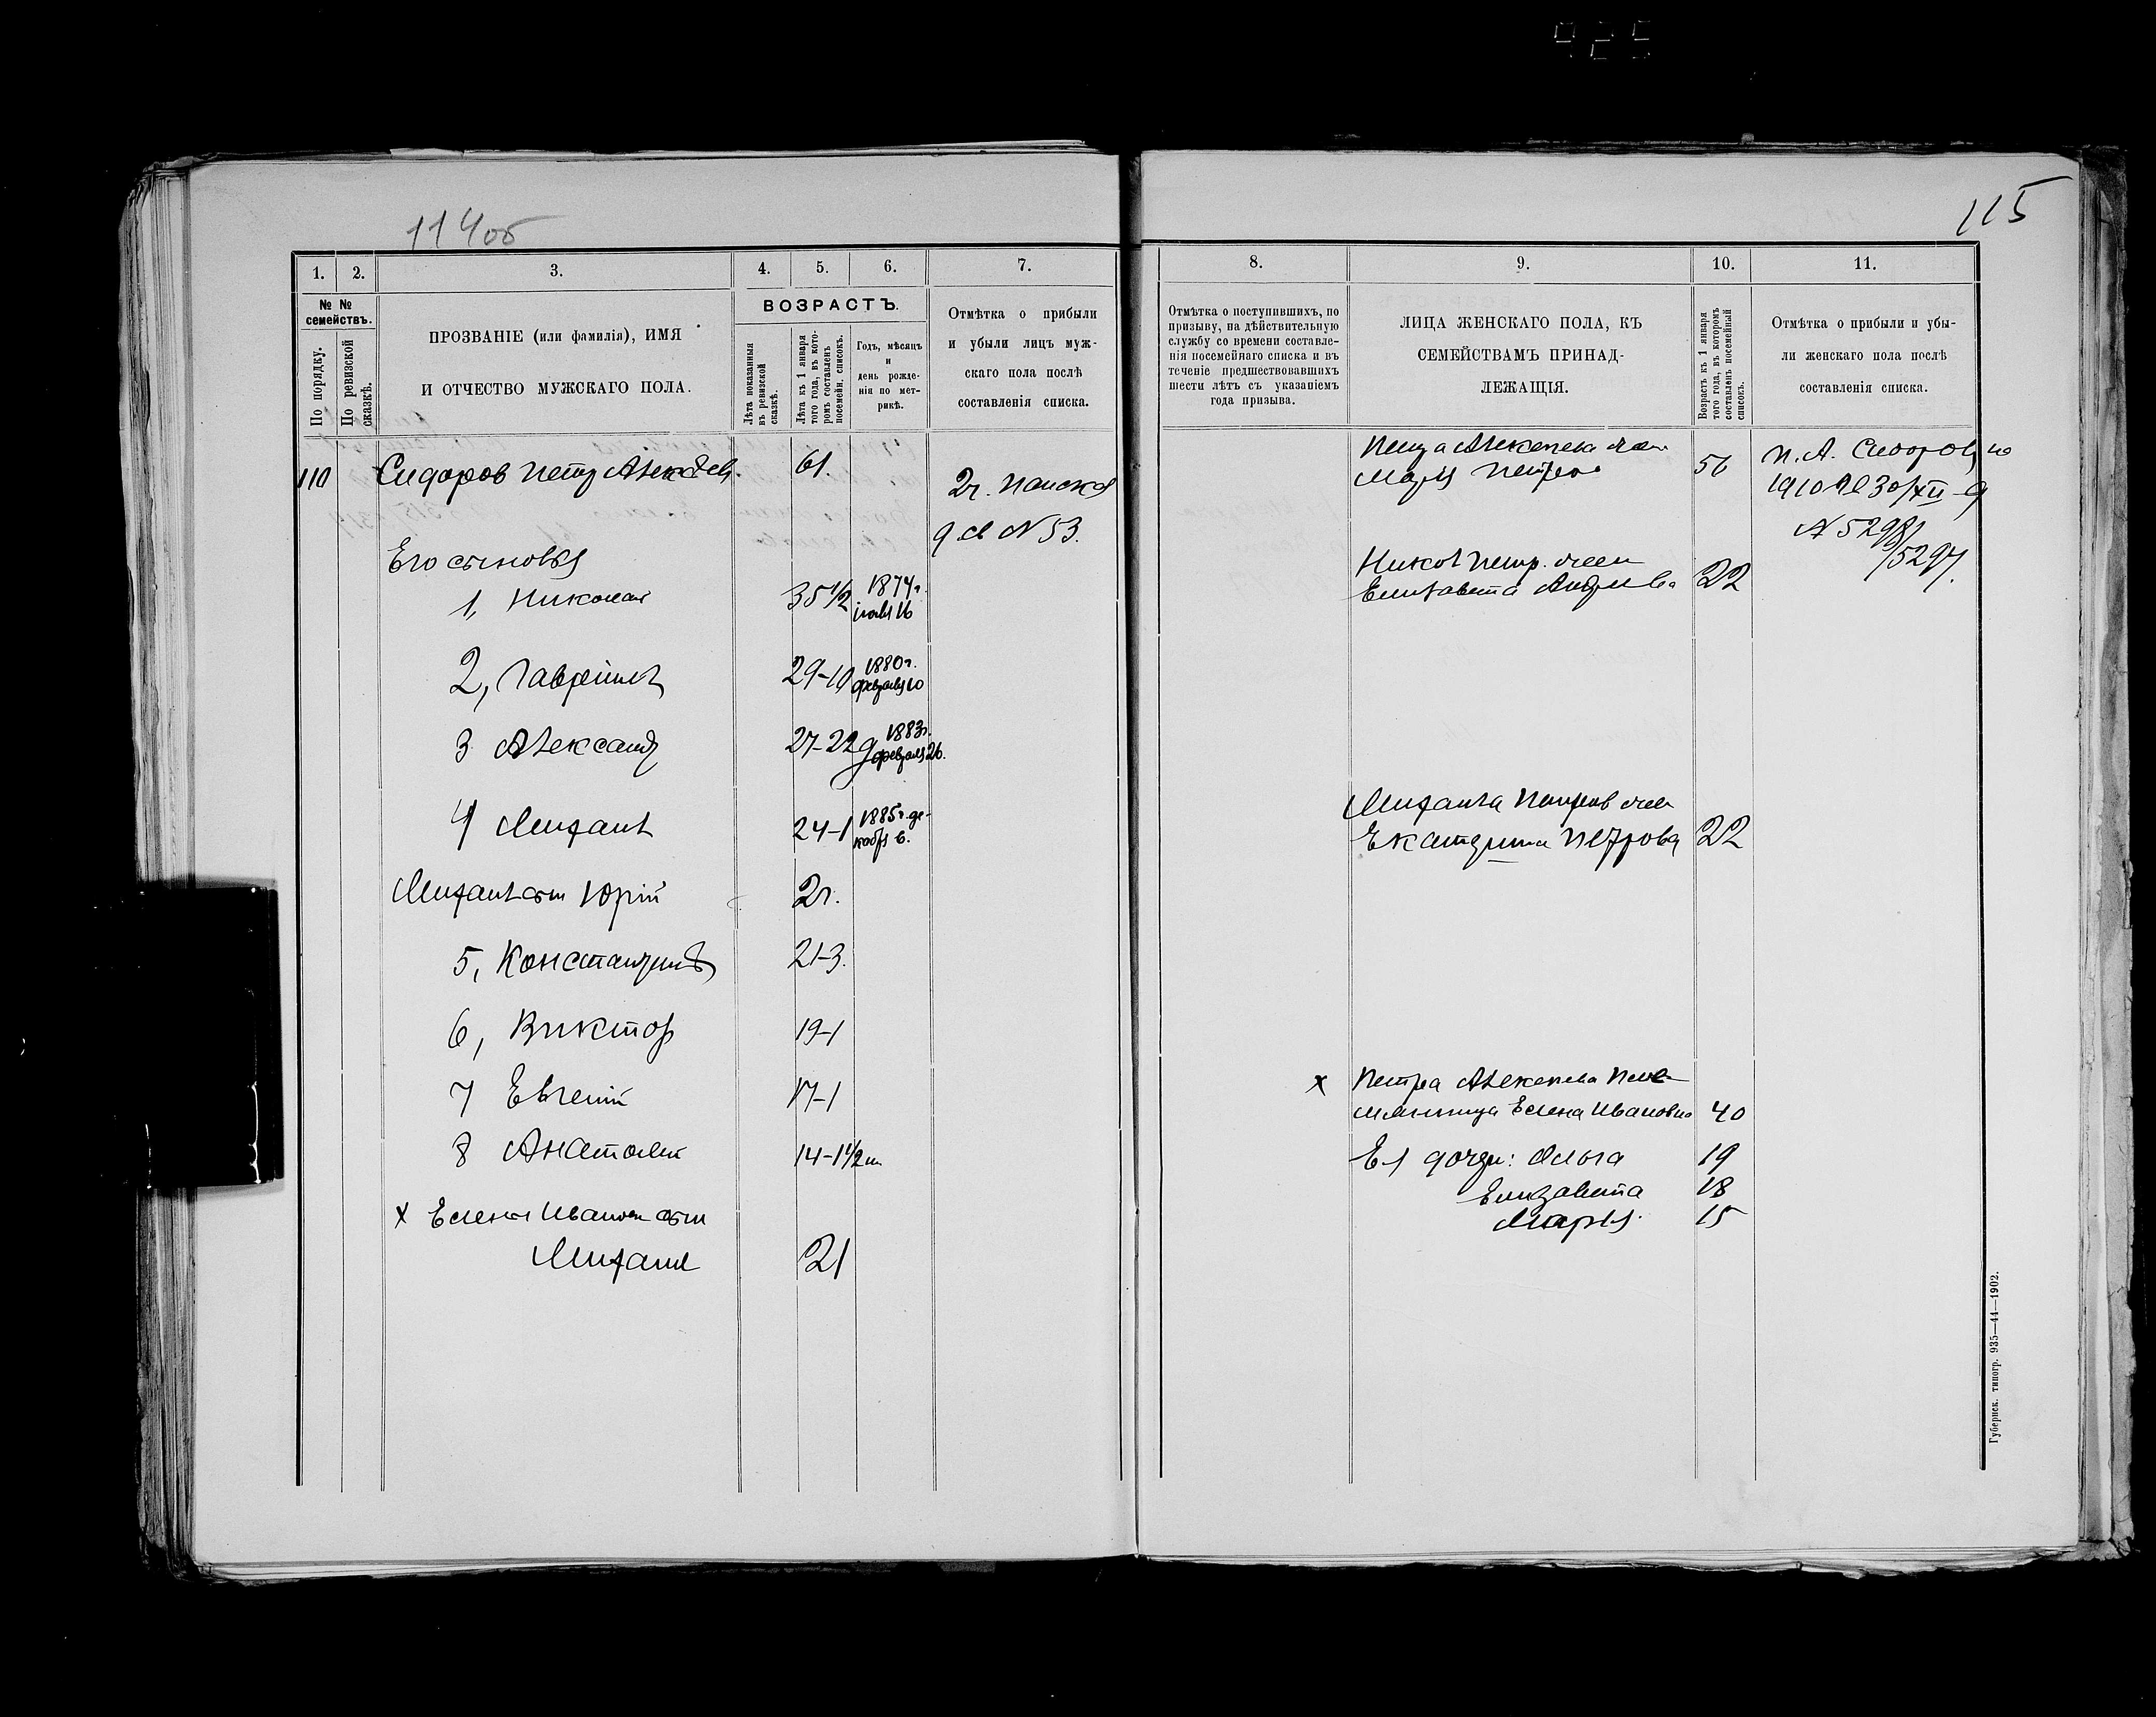 925
114об
115
1. 2. 3. 4. 5. 6. 7.
№ №
семействъ.
По порядку.
По ревизской
сказкѣ.
ПРОЗВАНІЕ (или фамилія), ИМЯ
И ОТЧЕСТВО МУЖСКАГО ПОЛА.
ВОЗРАСТЪ.
Лѣта показанныя
въ ревизской
сказкѣ.
Лѣта къ 1 января
того года, въ кото-
ромъ составленъ
посемейн. списокъ.
Годъ, мѣсяцъ
и
день рожде-
нія по мет-
рикѣ.
Отмѣтка о прибыли
и убыли лицъ муж-
скаго пола послѣ
составленія списка.
110 Сидоров Петр Алексѣев. 61.
2г.
№ 53.
Его сыновья
1, Николай 35 1/2 1874г.
16
2, Гавріил 29-10 1880г.
февраля 10
3 Александр 27-22 1883г.
февраля 26.
4 Михаил 24-1 1885г. де-
кабр 6.
Михаил сын Юрій 2г.
5, Константин 21-3.
6, Виктор 19-1
7 Евгеній 17-1
8 Анатолій 14-1 1/2
х Елены Иванов сын
Михаил 21
8. 9. 10. 11.
Отмѣтка о поступившихъ, по
призыву, на дѣйствительную
службу со времени составле-
нія посемейнаго списка и въ
теченіе предшествовавшихъ
шести лѣтъ съ указаніемъ
года призыва.
ЛИЦА ЖЕНСКАГО ПОЛА, КЪ
СЕМЕЙСТВАМЪ ПРИНАД-
ЛЕЖАЩІЯ.
Возрастъ къ 1 января
того года, въ которомъ
составленъ посемейный
списокъ.
Отмѣтка о прибыли и убы-
ли женскаго пола послѣ
составленія списка.
Петра Алексѣева жен
Марія Петров 56
П. А. Сидоров
1910 30/XII
№ 5298/
/5297.
Никол Петр. жен
Елизавета Андреева 22
Михаила Петров жен
Екатерина Петрова 22
х Петра Алексеева пле-
мянница Елена Ивановна 40
Ея дочери: Ольга 19
Елизавета 18
Марья. 15
Губернск. типогр. 935—44—1902.